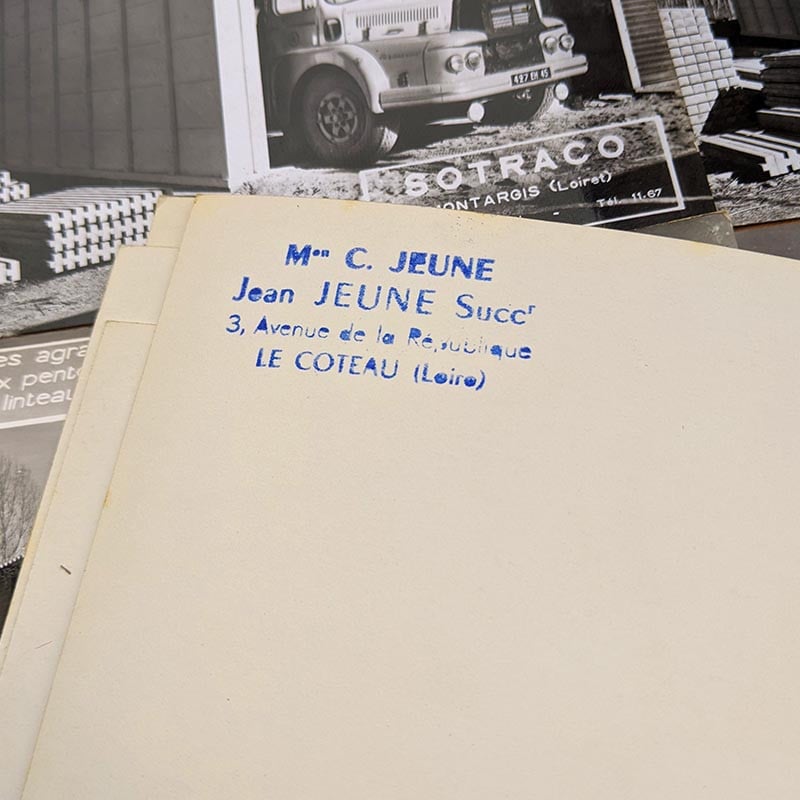 427 EH 45
SOTRACO
MONTARGIS (Loiret)
Tél. 11.67
es agra
x pent
linteau
Mᵒⁿ C. JEUNE
Jean JEUNE Succʳ
3, Avenue de la République
LE COTEAU (Loire)